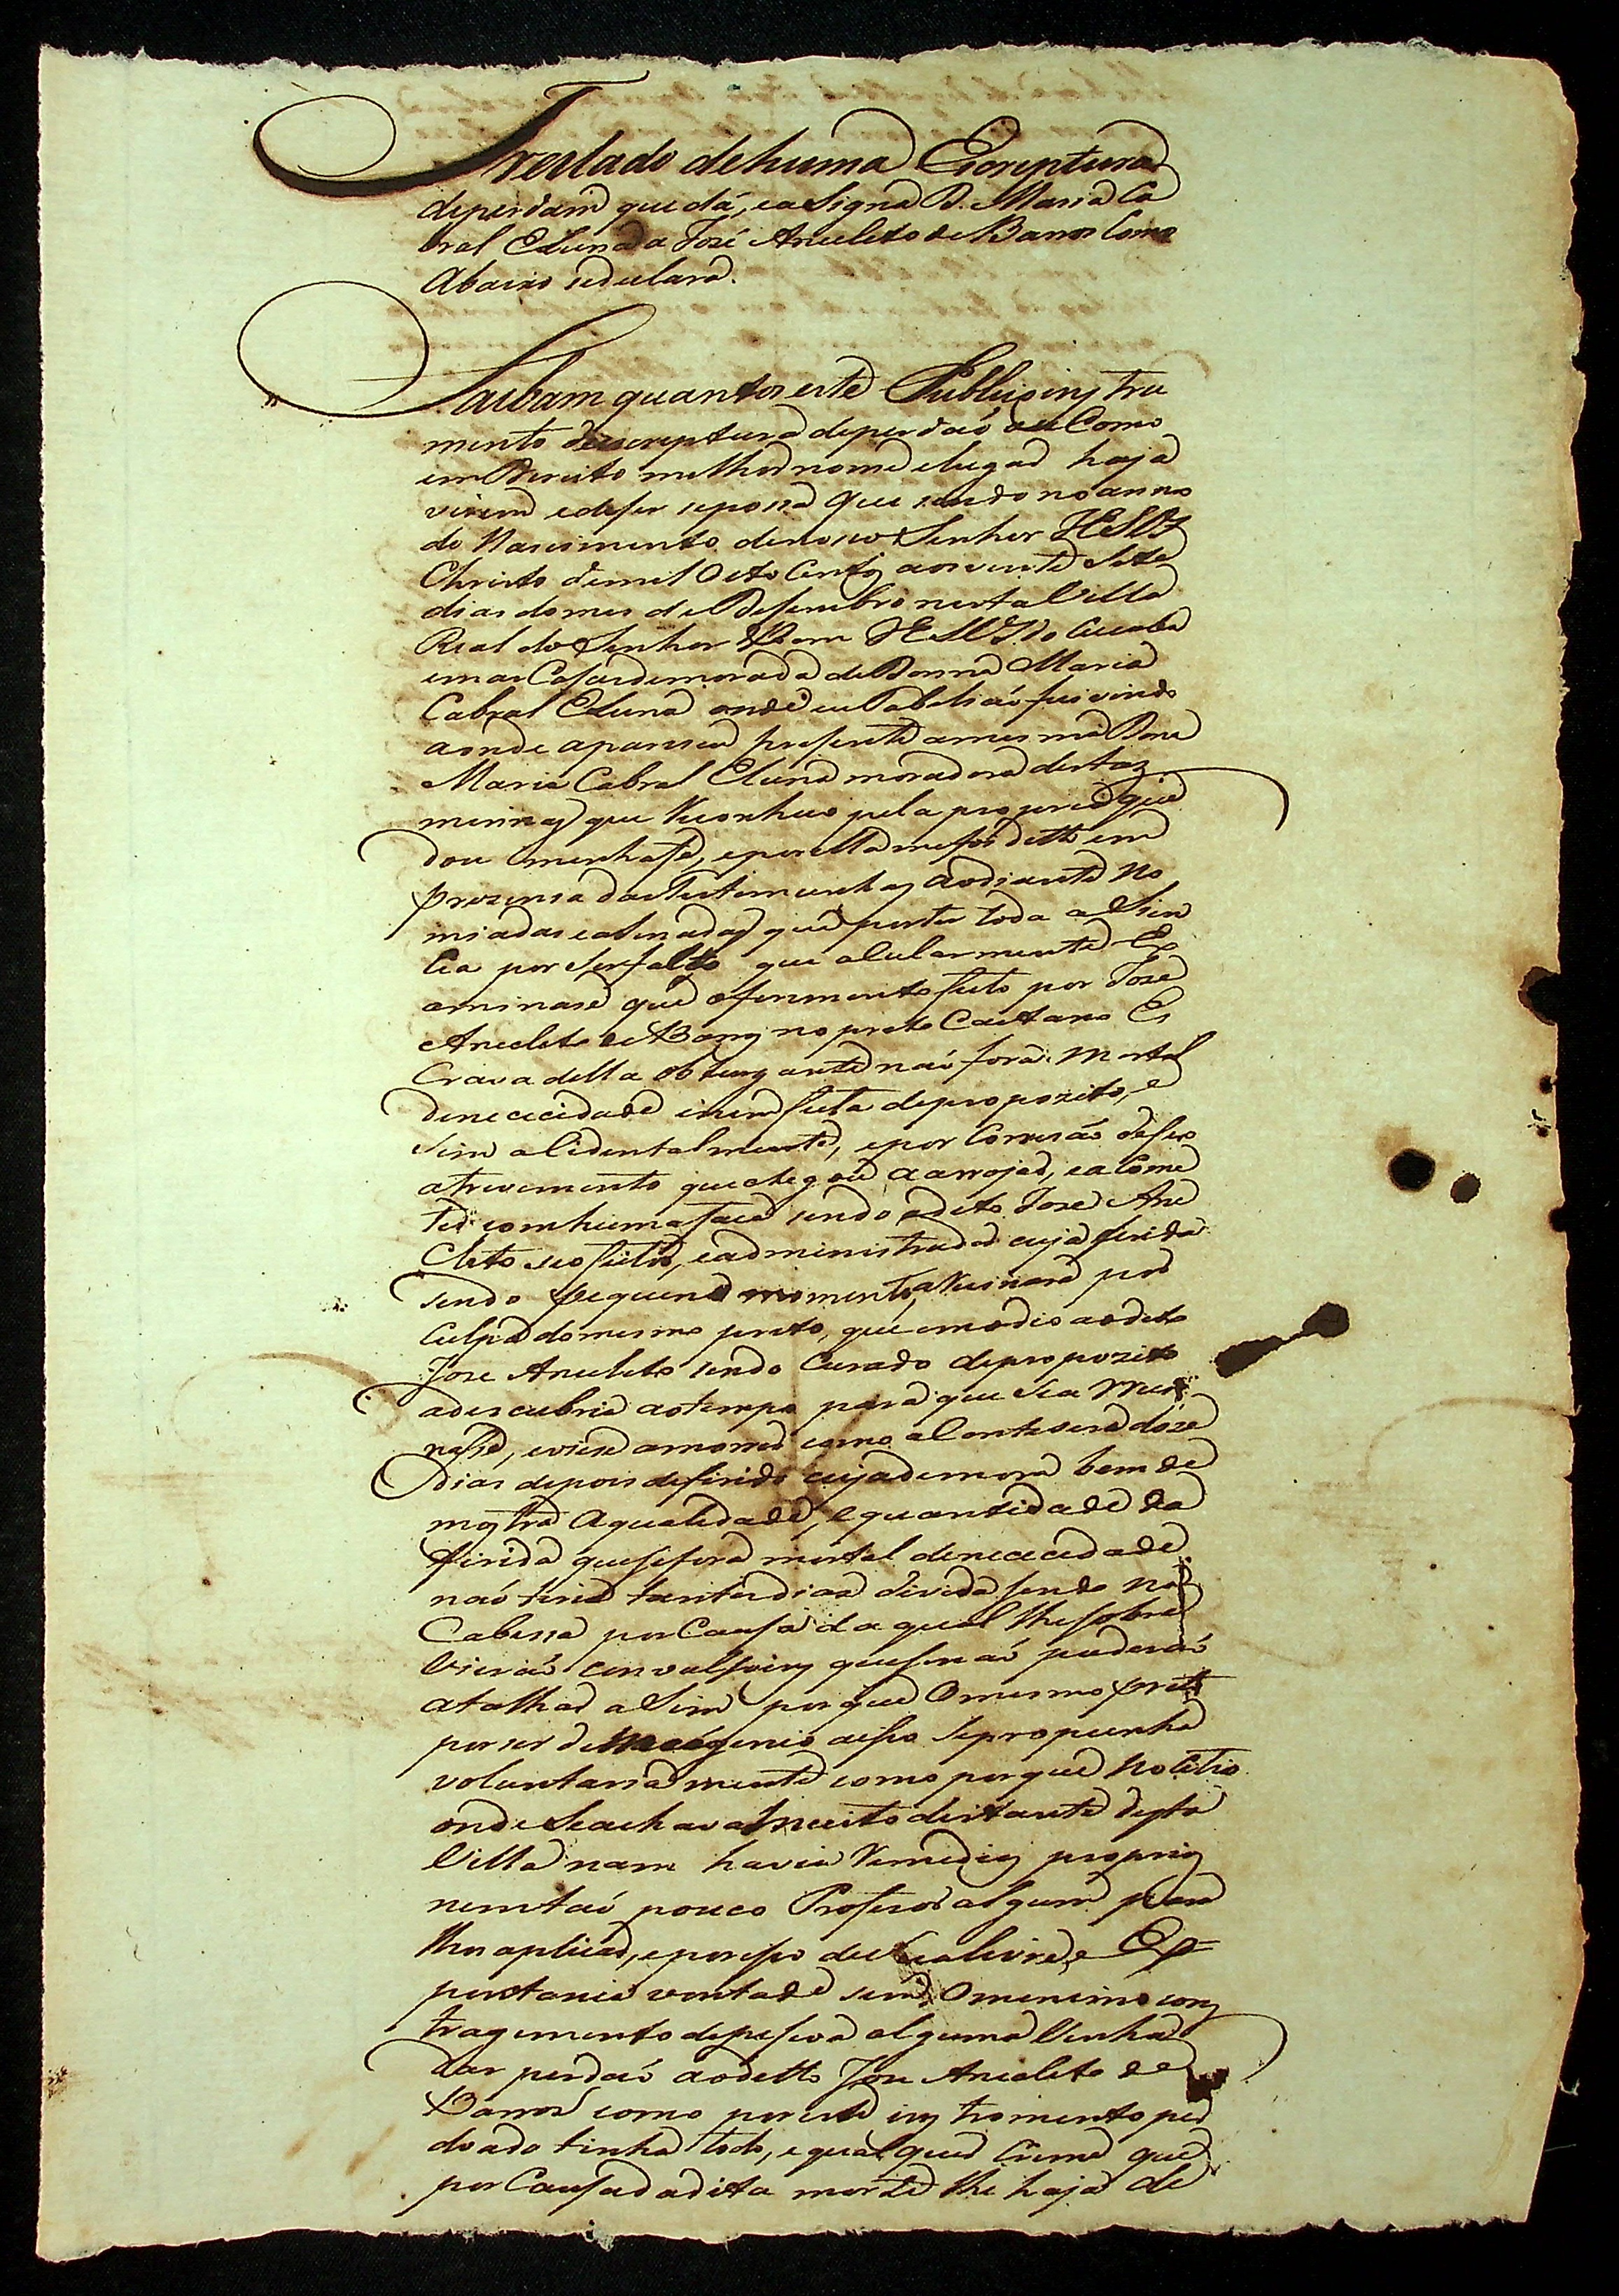 Treslado de huma Escriptura
de perdam que dá, e asigna D. Maria Ca
bral E Luna a José Anecleto de Barros Como
Abaixo sedeclara.
Saibam quantos este Publico ins tru
mento de escreptura deperdaó ou Como
em Direito melhor nome elugar haja
virem edeser sepossa que sendo no anno
do Nascimento denosso Senhor JESUS
Christo demil Oito Centos aos vinte Sete
dias domes de Desembro nesta Villa
Real do Senhor Bom JESUS do Cuiaba
em as Casas demorada de Donna Maria
Cabral E Luna onde eu Tabaliaó fui vindo
aonde apareseu presente amesma Dona
Maria Cabral E Luna moradora destas
minnas que Reconheso pela propria que
dou minha fé, e por ella mefoi ditto em
prezensa das Testemunhas aodiante No
miadas easinadas que por ter toda a Sien
cia por Ser falto que alularmente Ex
aminase que oferimento feito por José
Anecleto de Barros no preto Caetano Es
Cravo della Obtorgante naó fora Mortal
denececidade enem feita de proposito, e
Sim alidentalmente, e por Corresaó deseo
atrevimento que chegou a arrojar, ea Come
ter com huma faca sendo odito José Ane
Cleto seo feitor, eadministrador cuja ferida
sendo pequena momento, aRuinara por
Culpa domesmo preto, que em odio aodito
Jose Anecleto sendo Curado de proposito
adescubria aotempo para que Sea rrui
nasse, eviese amorrer como alonteseu a doze
Dias depois deferido cuja demora bem de
mostra a qualidade, e quantidade da
ferida que se fora mortal denececedade
naó teria tantos dias de vida sendo na
Cabessa por Causa da qual lhe sobre
Vieraó convulsoins que se naó puderaó
atalhar a Sim por que O mesmo preto
por ser de Mao genio a isso se propunha
voluntariamente como porque no Citio
onde Seachava Muito distante desta
Villa nam havia Remedios proprios
nem taó pouco Profesor algum para
lhos aplicar, e por isso de sua livre, e Ex
pontania vontade sem O menimo cons
tragimento depesoa alguma Vinha
dar perdaó aoditto Joze Anecleto de
Barros como por este ins tromento per
doado tinha todo, e qual quer Crime que
por Causa da dita morte lhe haja de